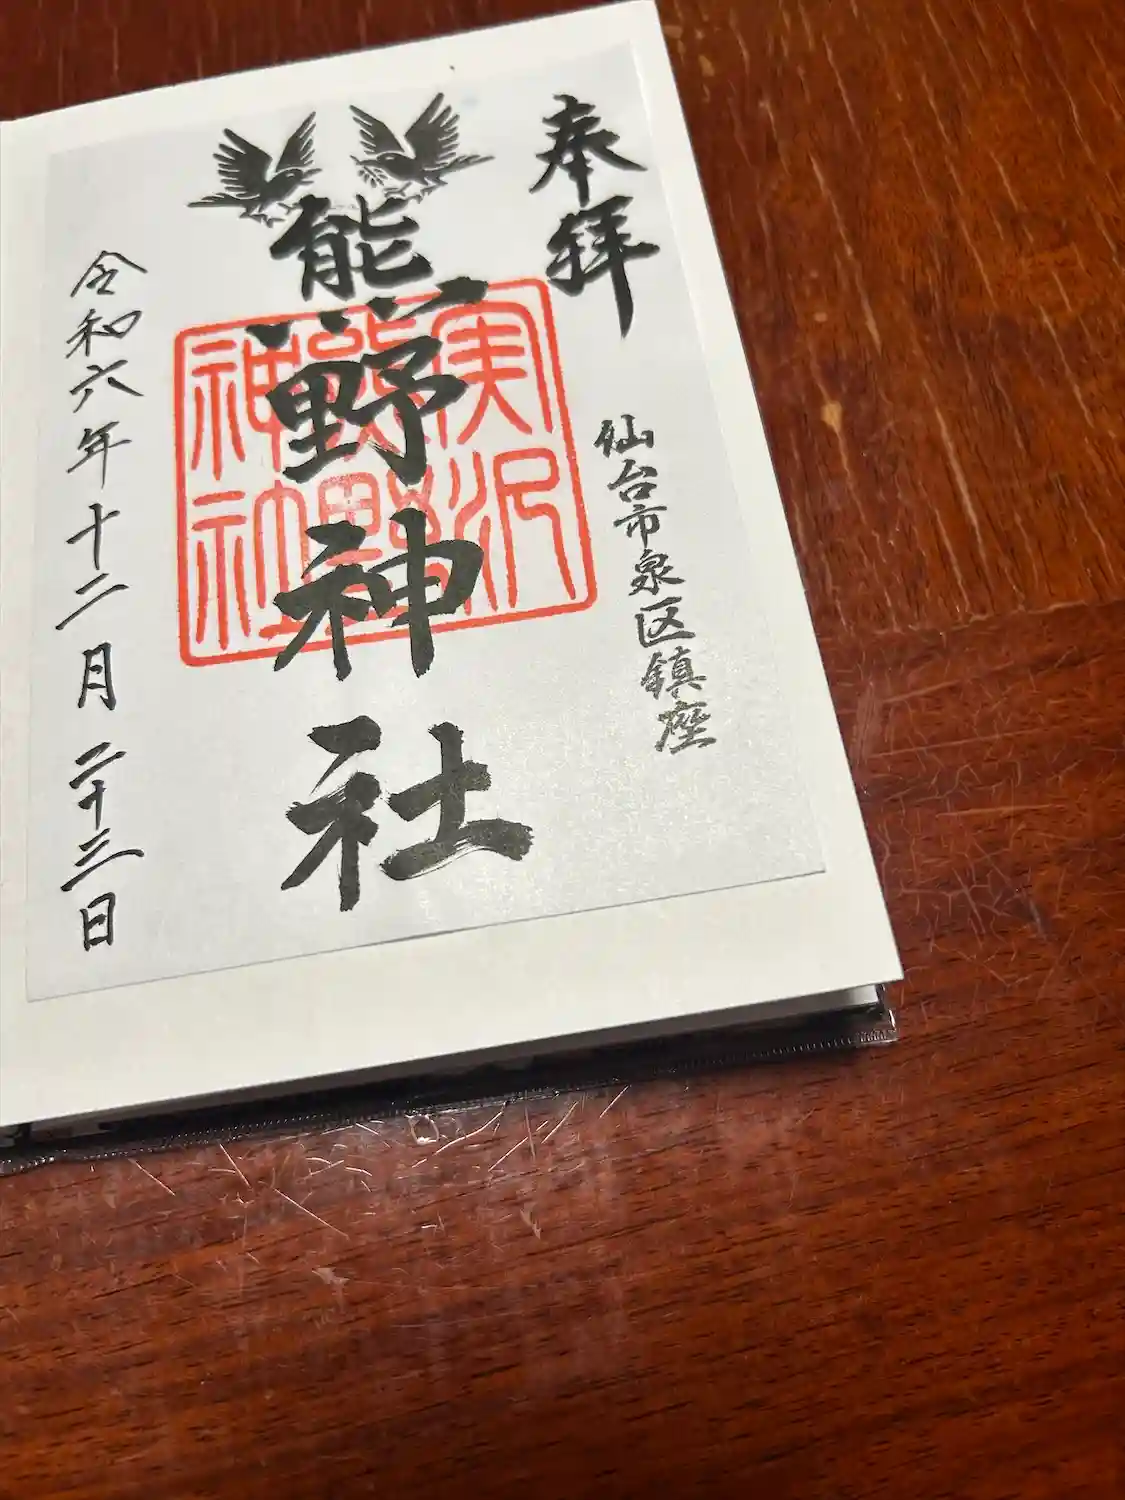 奉拝
仙台市泉区鎮座
熊野神社
実沢
熊野
神社
令和六年十二月二十三日